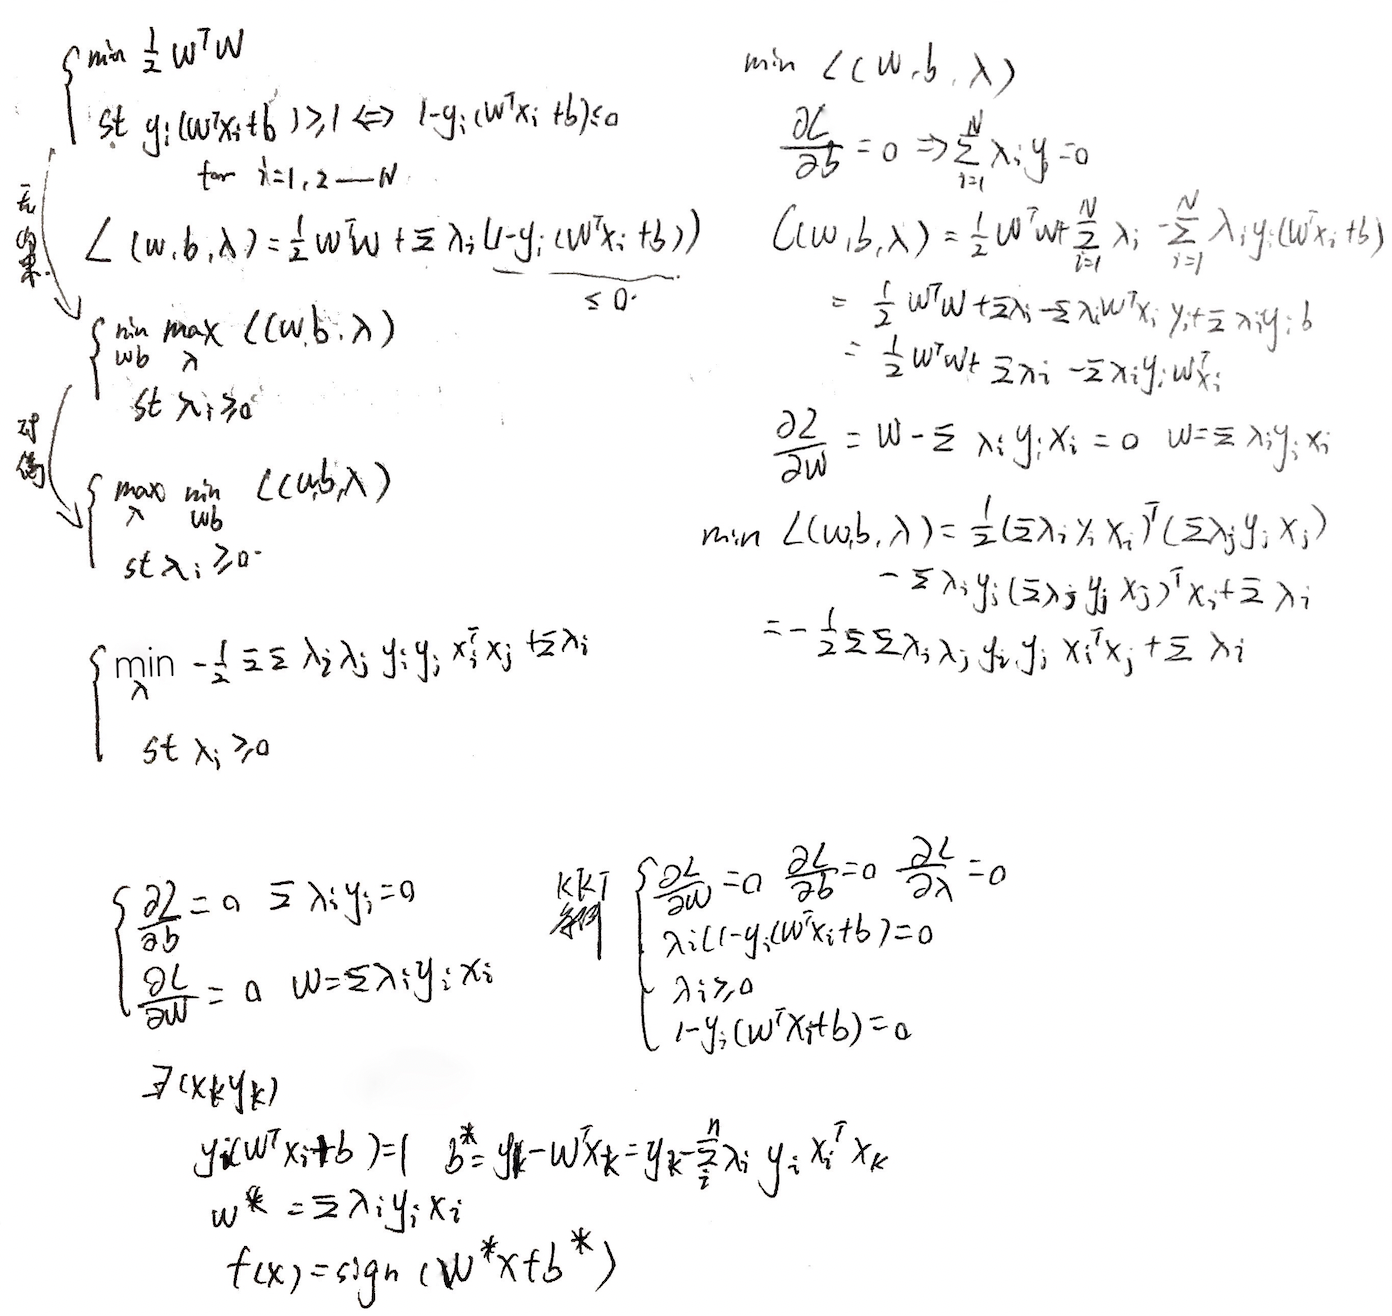 min 1/2 wᵀw
st yᵢ(wᵀxᵢ+b)≥1 ⇔ 1-yᵢ(wᵀxᵢ+b)≤0
for i=1,2—N
无约束
L(w,b,λ)=1/2 wᵀw+Σλᵢ(1-yᵢ(wᵀxᵢ+b))
≤0.
min max L(w,b,λ)
wb λ
st λᵢ≥0
对偶
max min L(w,b,λ)
λ wb
st λᵢ≥0.
min -1/2 ΣΣ λᵢλⱼ yᵢyⱼ xᵢᵀxⱼ+Σλᵢ
λ
st λᵢ≥0
min L(w,b,λ)
∂L/∂b=0 ⇒ Σᵢ₌₁ᴺ λᵢyᵢ=0
L(w,b,λ)=1/2 wᵀw+Σᵢ₌₁ᴺ λᵢ-Σᵢ₌₁ᴺ λᵢyᵢ(wᵀxᵢ+b)
=1/2 wᵀw+Σλᵢ-Σλᵢwᵀxᵢyᵢ+Σλᵢyᵢb
=1/2 wᵀw+Σλᵢ-Σλᵢyᵢwᵀxᵢ
∂L/∂w=w-Σλᵢyᵢxᵢ=0 w=Σλᵢyᵢxᵢ
min L(w,b,λ)=1/2(Σλᵢyᵢxᵢ)ᵀ(Σλⱼyⱼxⱼ)
-Σλᵢyᵢ(Σλⱼyⱼxⱼ)ᵀxᵢ+Σλᵢ
=-1/2 ΣΣλᵢλⱼyᵢyⱼxᵢᵀxⱼ+Σλᵢ
∂L/∂b=0 Σλᵢyᵢ=0
∂L/∂w=0 w=Σλᵢyᵢxᵢ
KKT
条件
∂L/∂w=0 ∂L/∂b=0 ∂L/∂λ=0
λᵢ(1-yᵢ(wᵀxᵢ+b)=0
λᵢ≥0
1-yᵢ(wᵀxᵢ+b)=0
∃(xₖyₖ)
yᵢ(wᵀxᵢ+b)=1 b*=yₖ-wᵀxₖ=yₖ-Σᵢⁿλᵢyᵢxᵢᵀxₖ
w*=Σλᵢyᵢxᵢ
f(x)=sign(w*x+b*)